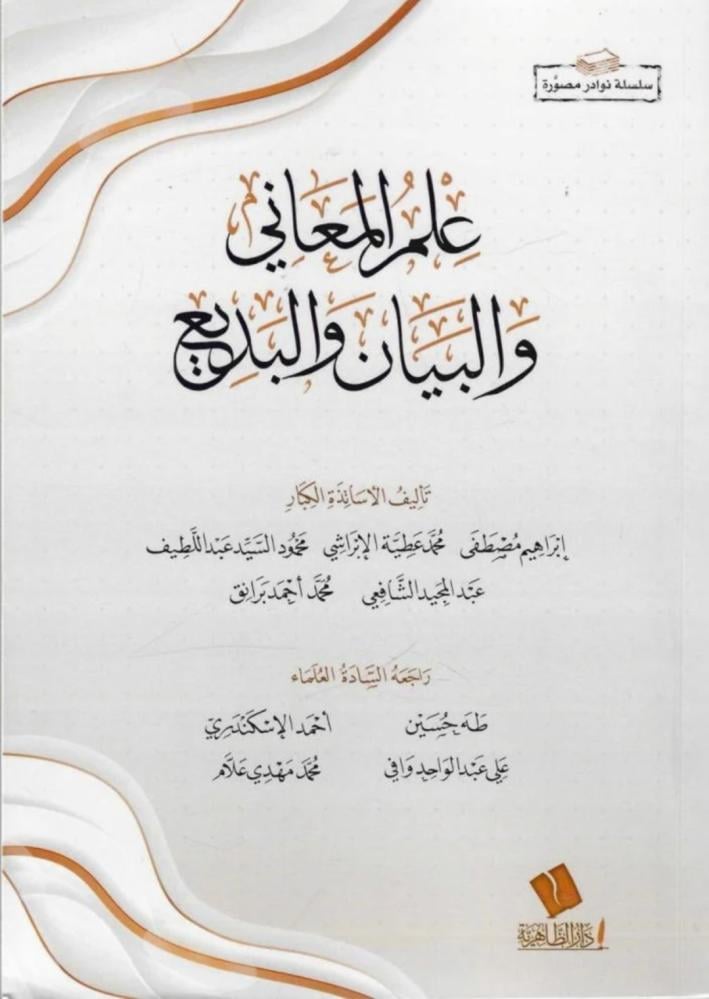 سلسلة نوادر مصورة
عِلْمُ المَعَانِي
وَالبَيَان وَالبَدِيع
تَأليفُ الأسَاتِذَةِ الكِبَارِ
إبْرَاهِيم مُصْطَفَى مُحَمَّد عَطِيَّة الإبْرَاشِي مَحْمُود السَّيِّد عَبْد اللَّطِيف
عَبْد المَجِيد الشَّافِعِي مُحَمَّد أحْمَد بَرَانِق
رَاجَعَهُ السَّادَةُ العُلَمَاء
طَه حُسَيْن أحْمَد الإسْكَنْدَرِيّ
عَلِي عَبْد الوَاحِد وَافِي مُحَمَّد مَهْدِي عَلَّام
دَارُ الظَّاهِرِيَّة